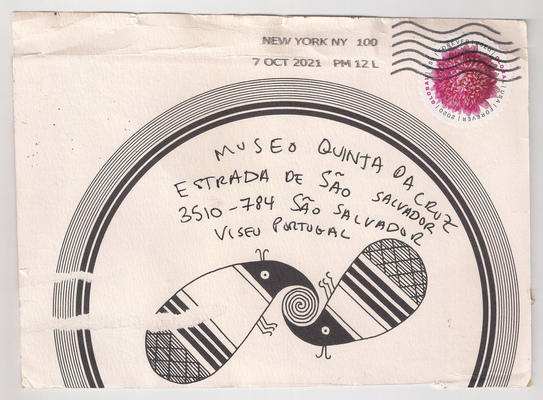 NEW YORK NY 100
7 OCT 2021 PM 12 L
GLOBAL USA FOREVER 2020
MUSEO QUINTA DA CRUZ
ESTRADA DE SÃO SALVADOR
3510-784 SÃO SALVADOR
VISEU PORTUGAL